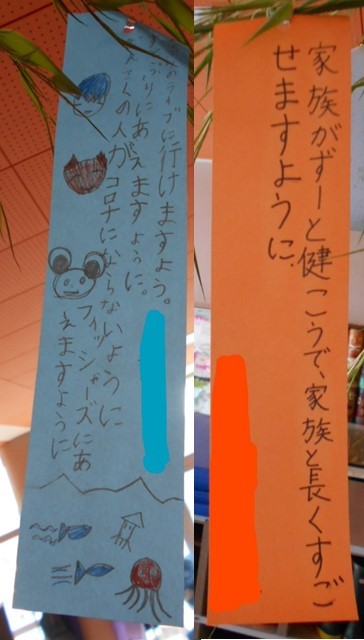 のライブに行けますよう。
にあえますように。
の人がコロナにかからないように
フィッシャーズにあ
えますように
家族がずーと健こうで、家族と長くすご
せますように.